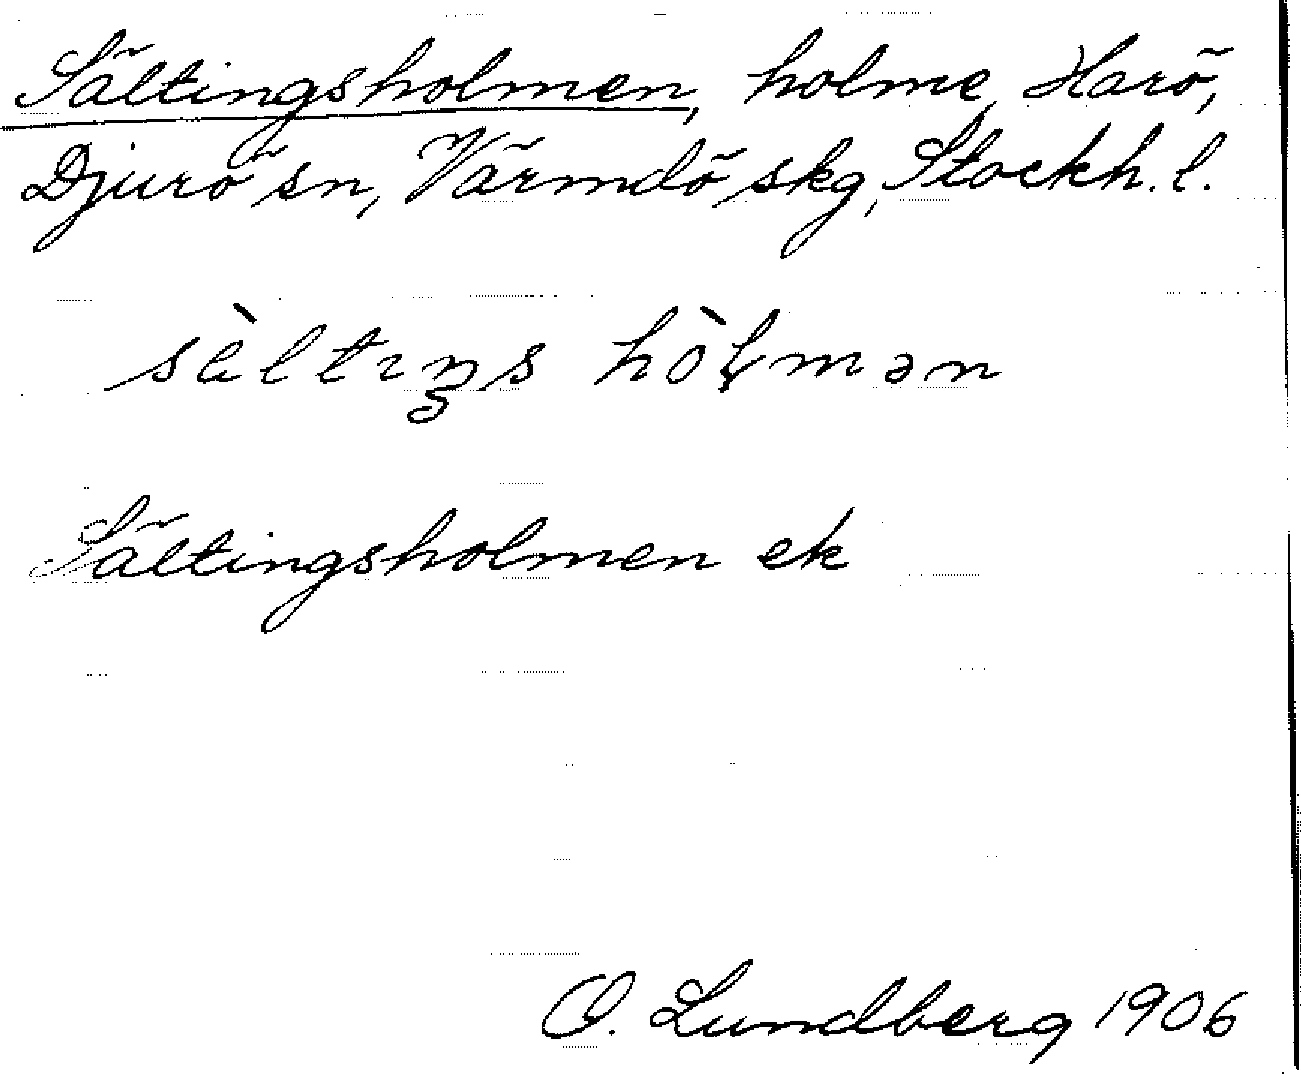 Sältingsholmen, holme, Harö,
Djurö sn, Värmdö skg, Stockh. l.
sèltıŋs hòlmən
Sältingsholmen ek
O. Lundberg 1906